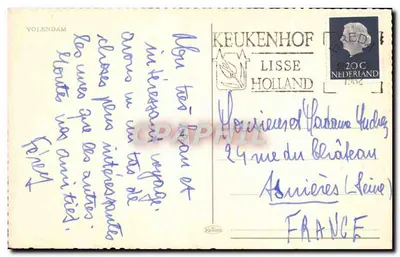 VOLENDAM
KEUKENHOF
LISSE
HOLLAND
20C
NEDERLAND
très beau et
intéressant voyage.
avons vu un tas de
choses plus intéressantes
les unes que les autres.
Toutes nos amitiés.
Monsieur et Madame
24 rue du Château
Asnières (Seine)
FRANCE